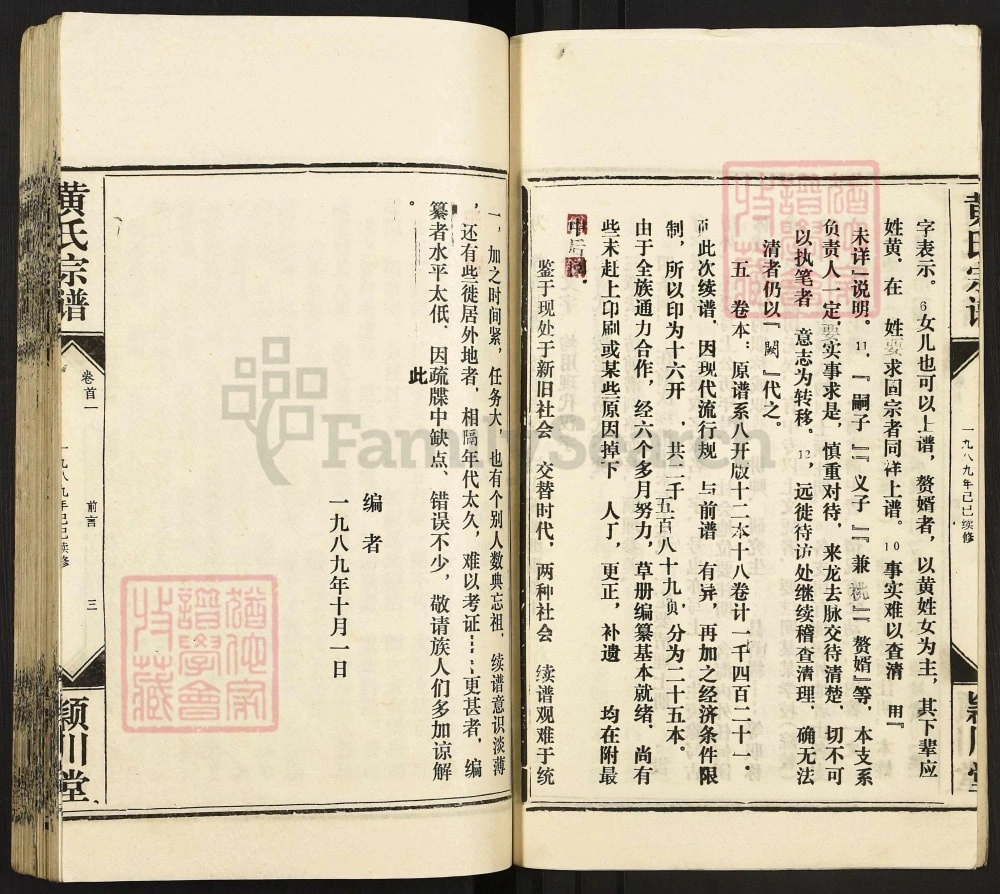 黄氏宗谱
一九八九年己巳续修
颍川堂
字表示。6女儿也可以上谱，赘婿者，以黄姓女为主，其下辈应
姓黄，在 姓要求同宗者同样上谱。10事实难以查清 用『
未详』说明。11，『嗣子』『义子』『兼祧』『赘婿』等，本支系
负责人一定要实事求是，慎重对待，来龙去脉交待清楚，切不可
以执笔者 意志为转移。12，远徙待访处继续稽查清理，确无法
清者仍以『阙』代之。
五 卷本：原谱系八开版十二本十八卷计一千四百二十一．
而此次续谱，因现代流行规 与前谱 有异，再加之经济条件限
制，所以印为十六开 ．共二千五百八十九页，分为二十五本．
由于全族通力合作，经六个多月努力，草册编纂基本就绪．尚有
些未赶上印刷或某些原因掉下 人丁，更正，补遗 均在附最
中后
鉴于现处于新旧社会 交替时代，两种社会 续谱观难于统
一，加之时间紧，任务大，也有个别人数典忘祖．续谱意识淡薄
，还有些徙居外地者，相隔年代太久，难以考证……更甚者，编
纂者水平太低、因此疏牒中缺点、错误不少，敬请族人们多加谅解
。
编者
一九八九年十月一日
黄氏宗谱
卷首一
前言
三
一九八九年己巳续修
颍川堂
FamilySearch